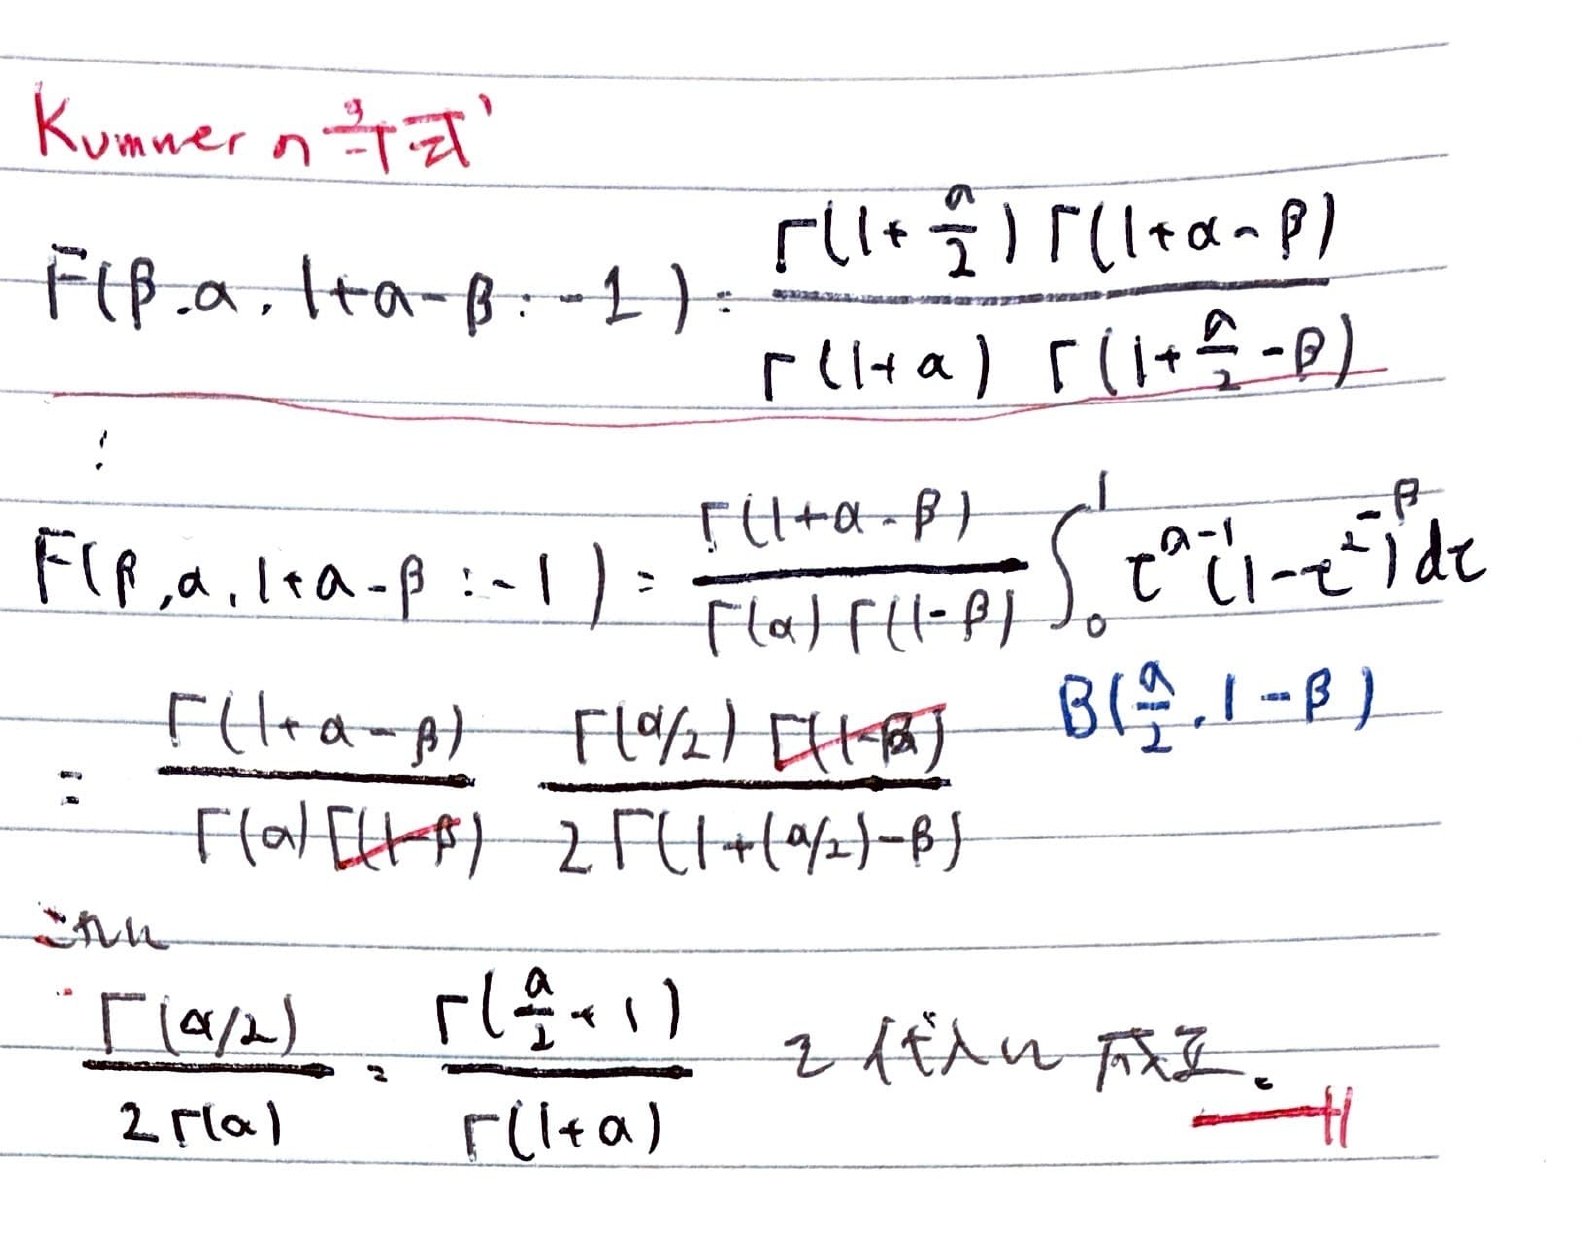 Kummer の 計式
F(β, α, 1+α-β : -1) = Γ(1+α/2) Γ(1+α-β) / Γ(1+α) Γ(1+α/2-β)
∵
F(β, α, 1+α-β : -1) = Γ(1+α-β) / Γ(α) Γ(1-β) ∫₀¹ τ^(α-1) (1-τ²)^(-β) dτ
B(α/2, 1-β)
= Γ(1+α-β) / Γ(α) Γ(1-β) Γ(α/2) Γ(1-β) / 2 Γ(1+(α/2)-β)
これに
Γ(α/2) / 2Γ(α) = Γ(α/2+1) / Γ(1+α) を 代入し 成立。